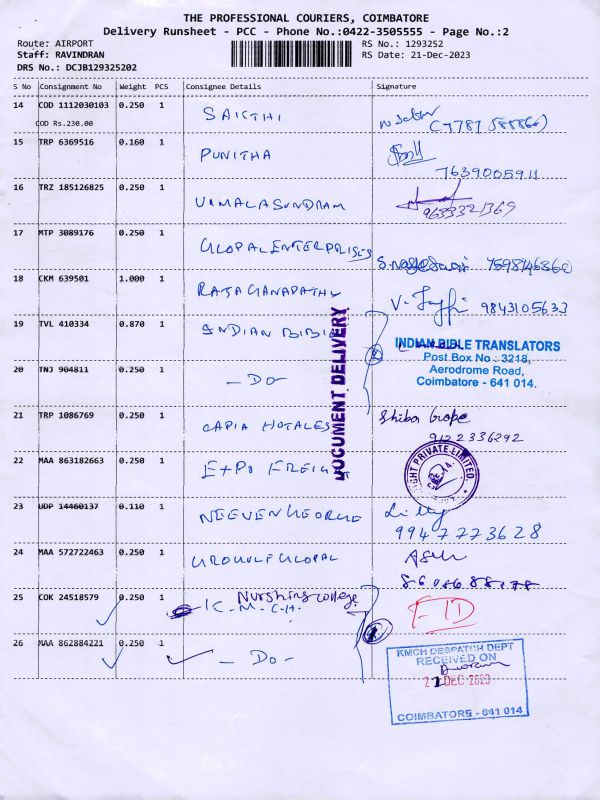 THE PROFESSIONAL COURIERS, COIMBATORE
Delivery Runsheet - PCC - Phone No.:0422-3505555 - Page No.:2
Route: AIRPORT RS No.: 1293252
Staff: RAVINDRAN RS Date: 21-Dec-2023
DRS No.: DCJB129325202
S No Consignment No Weight PCS Consignee Details Signature
14 COD 1112030103 0.250 1 SAKTHI
COD Rs.230.00
15 TRP 6369516 0.160 1 PUNITHA
7639005911
16 TRZ 185126825 0.250 1 VIMALASUNDRAM
9633321369
17 MTP 3089176 0.250 1 GLOPAL ENTERPRISES
7598146360
18 CKM 639501 1.000 1 RAJAGANAPATHY
9843105633
19 TVL 410334 0.870 1 INDIAN BIBLE
INDIAN BIBLE TRANSLATORS
Post Box No : 3218,
Aerodrome Road,
Coimbatore - 641 014.
DOCUMENT DELIVERY
20 TNJ 904811 0.250 1 - DO -
21 TRP 1086769 0.250 1 CAPIA HOTALES
9122336292
22 MAA 863182663 0.250 1 EXPO FREIGHT
GHT PRIVATE LIMITED.
23 UDP 14460137 0.110 1 NEEVEN GEORGE
9947773628
24 MAA 572722463 0.250 1 GROWLF GLOPAL
25 COK 24518579 0.250 1 K.M.C.H. Nurshing college
26 MAA 862884221 0.250 1 - DO -
KMCH DESPATCH DEPT
RECEIVED ON
DEC 2023
COIMBATORE - 641 014